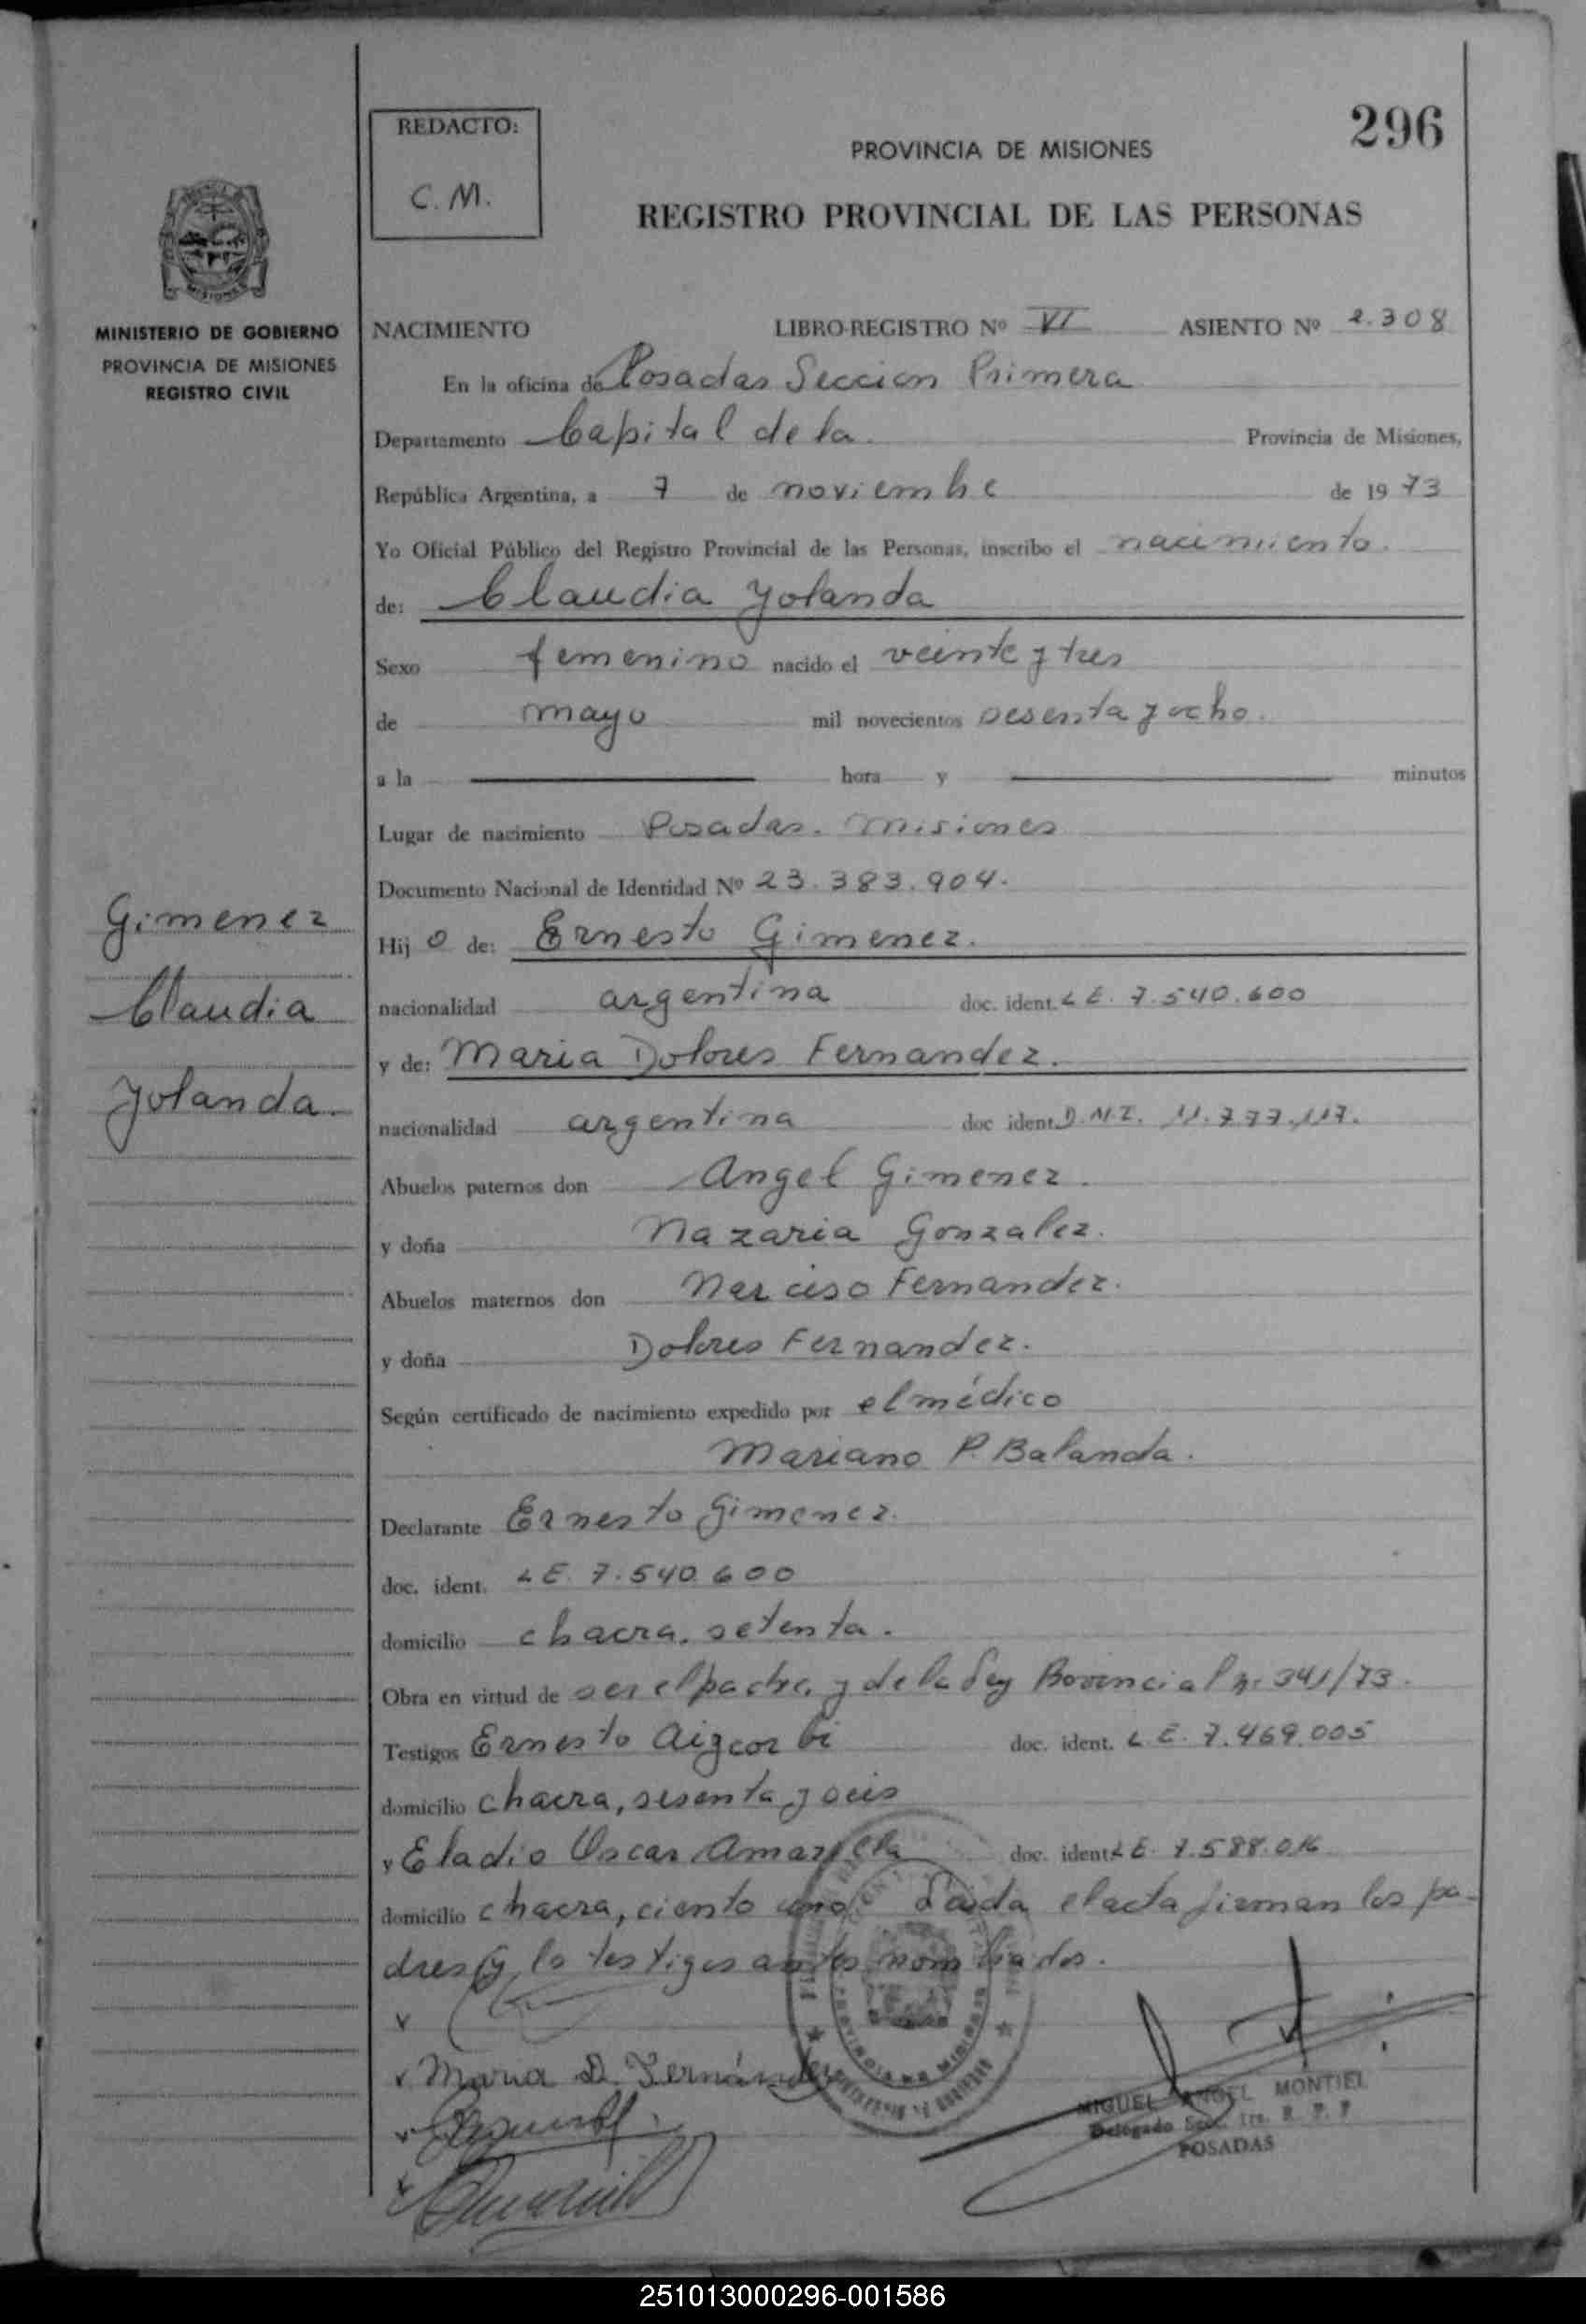 296
REDACTO:
C. M.
PROVINCIA DE MISIONES
REGISTRO PROVINCIAL DE LAS PERSONAS
MINISTERIO DE GOBIERNO
PROVINCIA DE MISIONES
REGISTRO CIVIL
NACIMIENTO LIBRO-REGISTRO Nº VI ASIENTO Nº 2.308
En la oficina de Posadas Seccion Primera
Departamento Capital de la Provincia de Misiones,
República Argentina, a 7 de noviembre de 1973
Yo Oficial Público del Registro Provincial de las Personas, inscribo el nacimiento.
de: Claudia Yolanda
Sexo femenino nacido el veinte y tres
de mayo mil novecientos sesenta y ocho.
a la hora y minutos
Lugar de nacimiento Posadas. Misiones
Documento Nacional de Identidad Nº 23.383.904.
Gimenez
Claudia
Yolanda.
Hijo de: Ernesto Gimenez.
nacionalidad argentina doc. ident. L E. 7.540.600
y de: Maria Dolores Fernandez.
nacionalidad argentina doc ident. D.N.I. 11.777.117.
Abuelos paternos don Angel Gimenez.
y doña Nazaria Gonzalez.
Abuelos maternos don Narciso Fernandez.
y doña Dolores Fernandez.
Según certificado de nacimiento expedido por el médico
Mariano P. Balanda.
Declarante Ernesto Gimenez.
doc. ident. L E. 7.540.600
domicilio chacra, setenta.
Obra en virtud de ser el padre, y de la Ley Provincial n: 341/73.
Testigos Ernesto doc. ident. L. E. 7.469.005
domicilio chacra, sesenta y seis
y Eladio Oscar doc. ident. L E. 7.588.016
domicilio chacra, ciento uno. Leida el acta firman los pa-
dres y los testigos antes nombrados.
Maria D. Fernández
MIGUEL ANGEL MONTIEL
Delegado Secc. 1ra. R. P. P
POSADAS
251013000296-001586